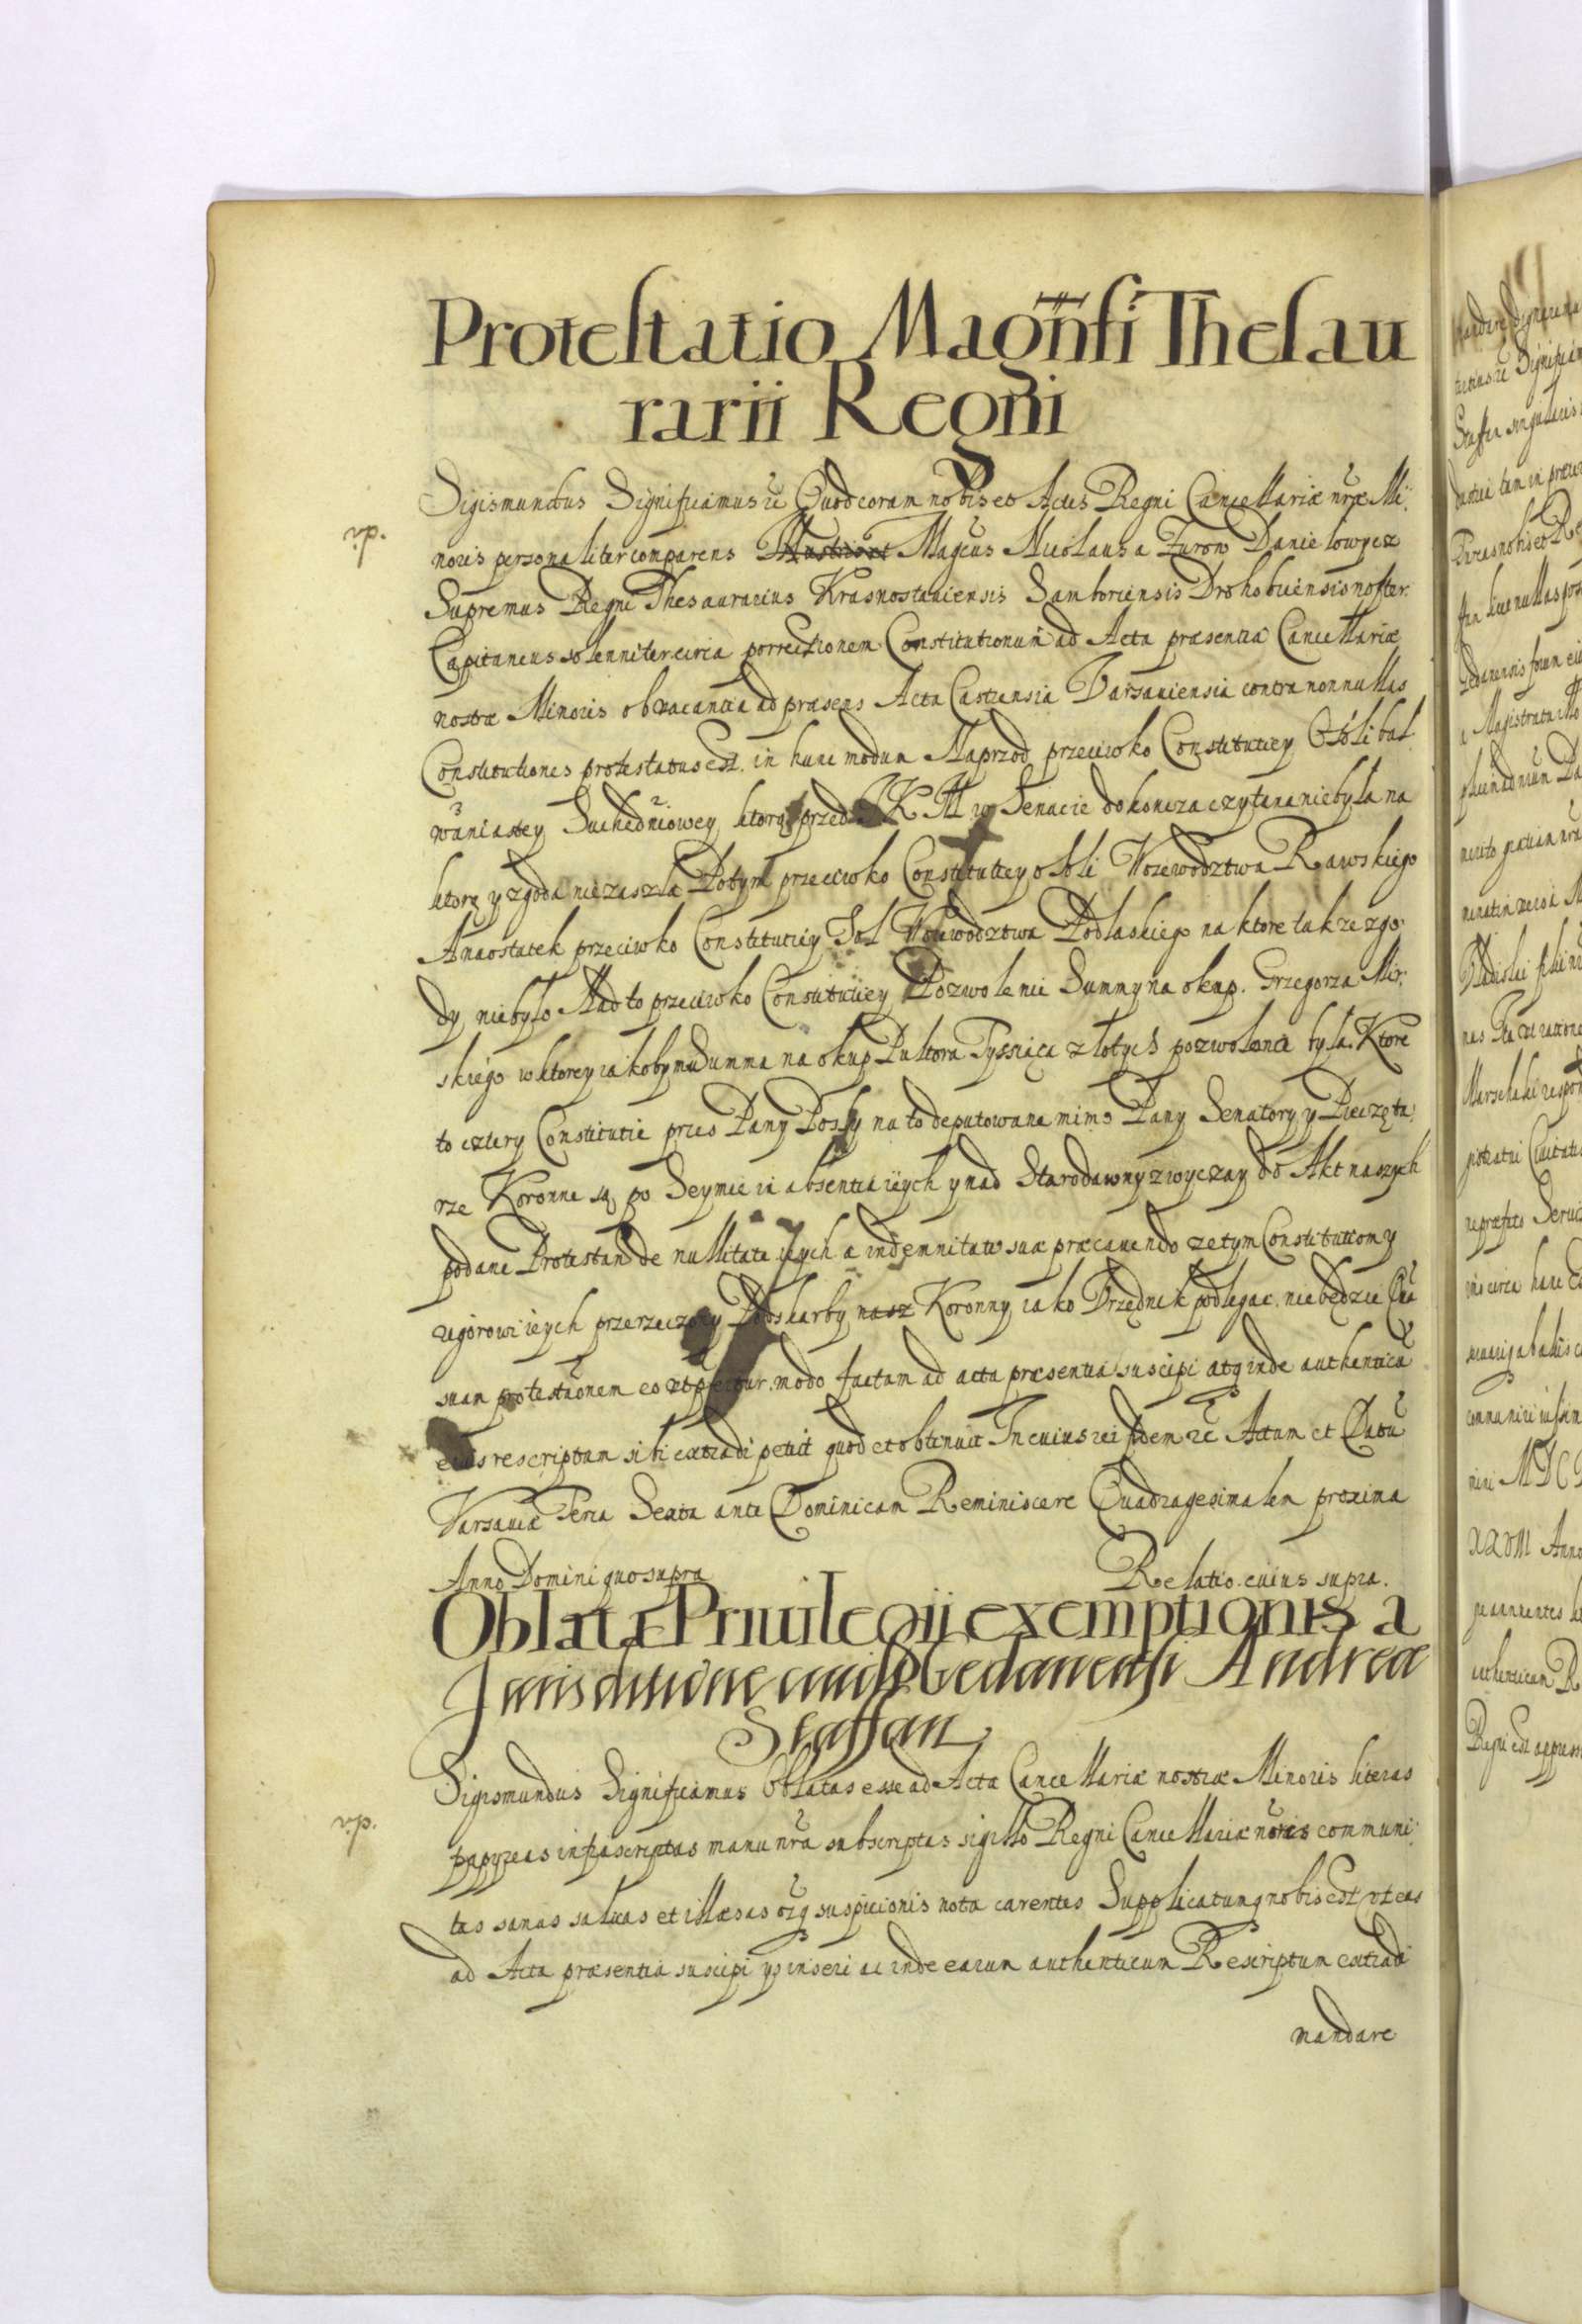 Protestatio Magnfi Thesau
rarii Regni
Sigismundus Significamus &c Quod coram nobis et Actis Regni Cancellariæ nræ Mi
noris personaliter comparens Magcus Nicolaus a Zurow Danielowycz
Supremus Regni Thesaurarius Krasnostauiensis Samboriensis Drohobicensis noster
Capitaneus solenniter circa porrectionem Constitutionum ad Acta præsentia Cancellariæ
nostræ Minoris ob vacantia ad præsens Acta Castrensia Varsauiensia contra nonnullas
Constitutiones protestatus est in hunc modum Naprzod przeciwko Constitutiey O soli bał
waniastey Suchedniowey ktora przed J K M w Senacie dokończa czytana niebyła na
ktorą y zgoda niezaszła Potym przeciwko Constitutiey o soli Woiewodztwa Rawskiego
A naostatek przeciwko Constitutiey Sol Woiewodztwa Podlaskiego na ktore takze zgo
dy niebyło Nad to przeciwko Constitutiey Pozwolenie Summy na okup Grzegorza Mir
skiego w ktorey iakoby mu Summa na okup Pułtora Tysiąca złotych pozwolona była Ktore
to cztery Constitutie przes Pany Posły na to deputowane mimo Pany Senatory y Pieczęta
rze Koronne są po Seymie in absentia ieych y nad Starodawny zwyczay do Akt naszych
podane Protestans de nullitate ieych a indemnitati suæ præcauendo ze tym Constitutiom y
rigorowi ieych przerzeczony Podskarby nasz Koronny iako Vrzędnik podlegac niebędzie
suam protestaonem eo modo factam ad acta præsentia suscipi atq inde authenticũ
eius rescriptum sibi extradi petiit quod et obtinuit In cuius rei fidem &c Actum et Datũ
Varsauiæ Feria Sexta ante Dominicam Reminiscere Quadragesimalem proxima
Anno Domini quo supra Relatio cuius supra.
Oblatæ Priuilegii exemptionis a
Jurisdictione ciuili Gedanensi Andreæ
Staffan
Sigismundus Significamus Oblatas esse ad Acta Cancellariæ nostræ Minoris literas
papyreas infrascriptas manu nra subscriptas sigillo Regni Cancellariæ communi
tas sanas saluas et illæsas oīq suspicionis nota carentes Supplicatumq nobis est vt eas
ad Acta præsentia suscipi ysq inseri ac inde earum authenticum Rescriptum extradi
mandare